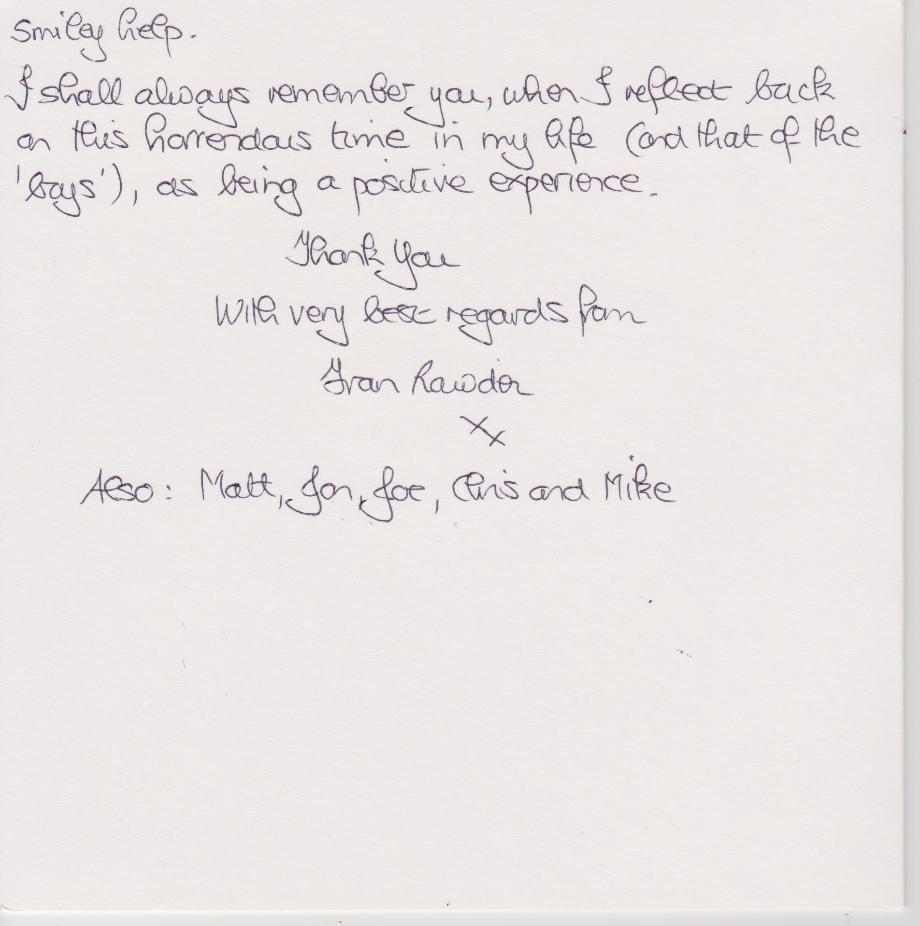 Smiley help.
I shall always remember you, when I reflect back
on this horrendous time in my life (and that of the
'boys'), as being a positive experience.
Thank You
With very best regards from
Fran
xx
Also: Matt, Jon, Joe, Chris and Mike